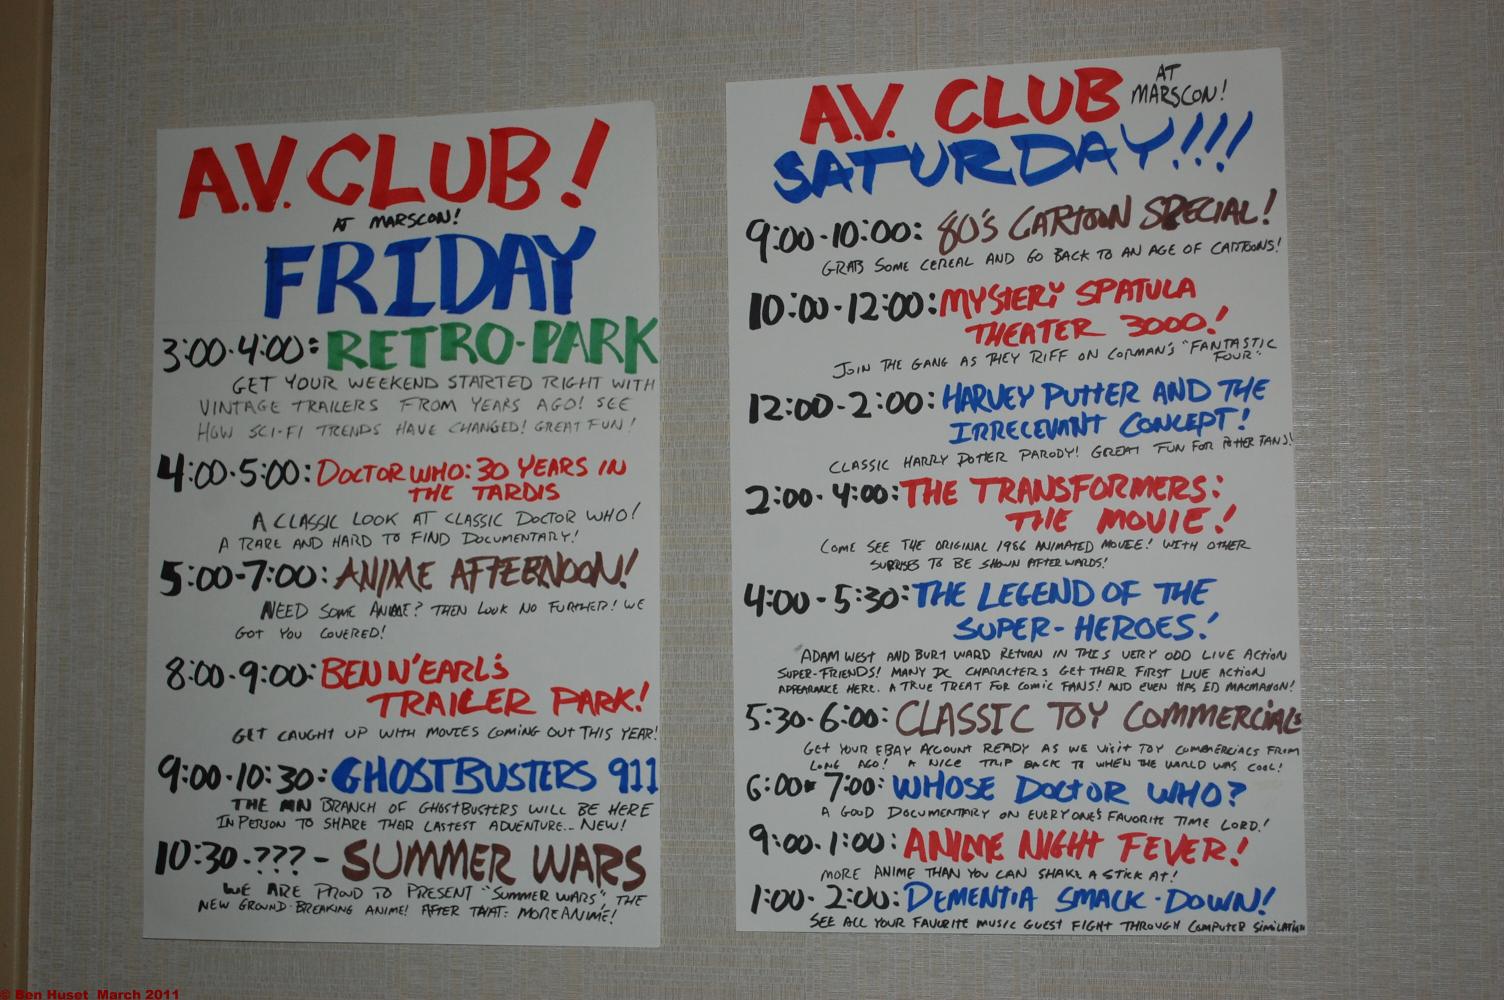 A.V. CLUB!
AT MARSCON!
FRIDAY
3:00-4:00: RETRO-PARK
GET YOUR WEEKEND STARTED RIGHT WITH
VINTAGE TRAILERS FROM YEARS AGO! SEE
HOW SCI-FI TRENDS HAVE CHANGED! GREAT FUN!
4:00-5:00: DOCTOR WHO: 30 YEARS IN
THE TARDIS
A CLASSIC LOOK AT CLASSIC DOCTOR WHO!
A RARE AND HARD TO FIND DOCUMENTARY!
5:00-7:00: ANIME AFTERNOON!
NEED SOME ANIME? THEN LOOK NO FURTHER! WE
GOT YOU COVERED!
8:00-9:00: BEN N' EARL'S
TRAILER PARK!
GET CAUGHT UP WITH MOVIES COMING OUT THIS YEAR!
9:00-10:30: GHOSTBUSTERS 911
THE MN BRANCH OF GHOSTBUSTERS WILL BE HERE
IN PERSON TO SHARE THEIR LASTEST ADVENTURE... NEW!
10:30-???- SUMMER WARS
WE ARE PROUD TO PRESENT "SUMMER WARS", THE
NEW GROUND-BREAKING ANIME! AFTER THAT: MORE ANIME!
A.V. CLUB AT
MARSCON!
SATURDAY!!!!
9:00-10:00: 80'S CARTOON SPECIAL!
GRAB SOME CEREAL AND GO BACK TO AN AGE OF CARTOONS!
10:00-12:00: MYSTERY SPATULA
THEATER 3000!
JOIN THE GANG AS THEY RIFF ON CORMAN'S "FANTASTIC
FOUR"
12:00-2:00: HARVEY PUTTER AND THE
IRRELEVANT CONCEPT!
CLASSIC HARRY POTTER PARODY! GREAT FUN FOR POTTER FANS!
2:00-4:00: THE TRANSFORMERS:
THE MOVIE!
COME SEE THE ORIGINAL 1986 ANIMATED MOVIE! WITH OTHER
SURPRISES TO BE SHOWN AFTERWARDS!
4:00-5:30: THE LEGEND OF THE
SUPER-HEROES!
ADAM WEST AND BURT WARD RETURN IN THIS VERY ODD LIVE ACTION
SUPER-FRIENDS! MANY DC CHARACTERS GET THEIR FIRST LIVE ACTION
APPEARANCE HERE. A TRUE TREAT FOR COMIC FANS! AND EVEN HAS ED MACMAHON!
5:30-6:00: CLASSIC TOY COMMERCIALS
GET YOUR EBAY ACCOUNT READY AS WE VISIT TOY COMMERCIALS FROM
LONG AGO! A NICE TRIP BACK TO WHEN THE WORLD WAS COOL!
6:00-7:00: WHOSE DOCTOR WHO?
A GOOD DOCUMENTARY ON EVERYONE'S FAVORITE TIME LORD!
9:00-1:00: ANIME NIGHT FEVER!
MORE ANIME THAN YOU CAN SHAKE A STICK AT!
1:00-2:00: DEMENTIA SMACK-DOWN!
SEE ALL YOUR FAVORITE MUSIC GUEST FIGHT THROUGH COMPUTER SIMULATION
© Ben Huset March 2011